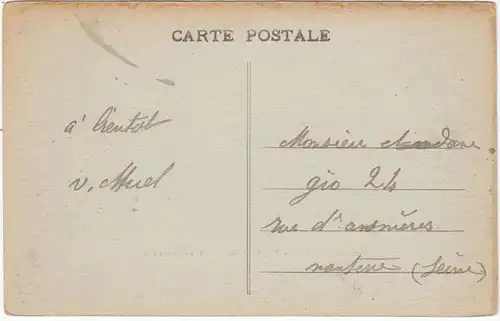 CARTE POSTALE
a' bientot
v. Muel
Monsieur et madame
gio 24
rue d'asnières
nanterre (Seine)